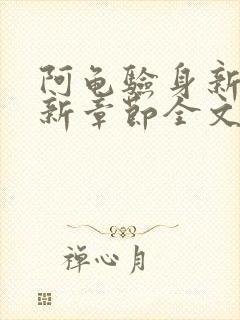 阿龟驗身新
新章節全文
禅心月